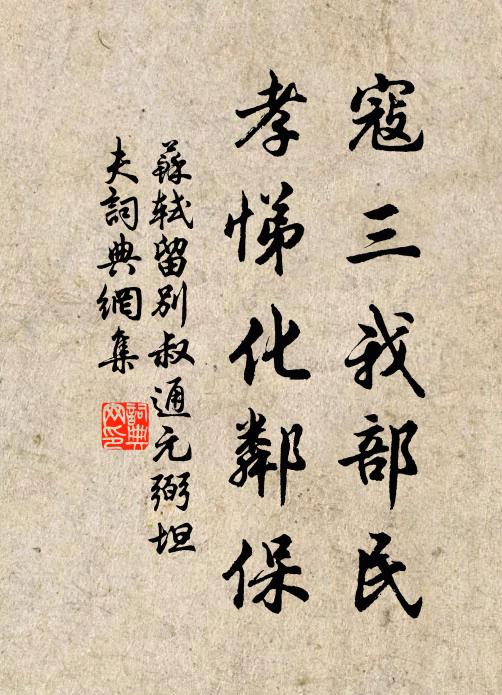 寇三我部民
孝悌化鄰保
蘇軾留別叔通元弼坦
夫詞典網集
詞典
网印